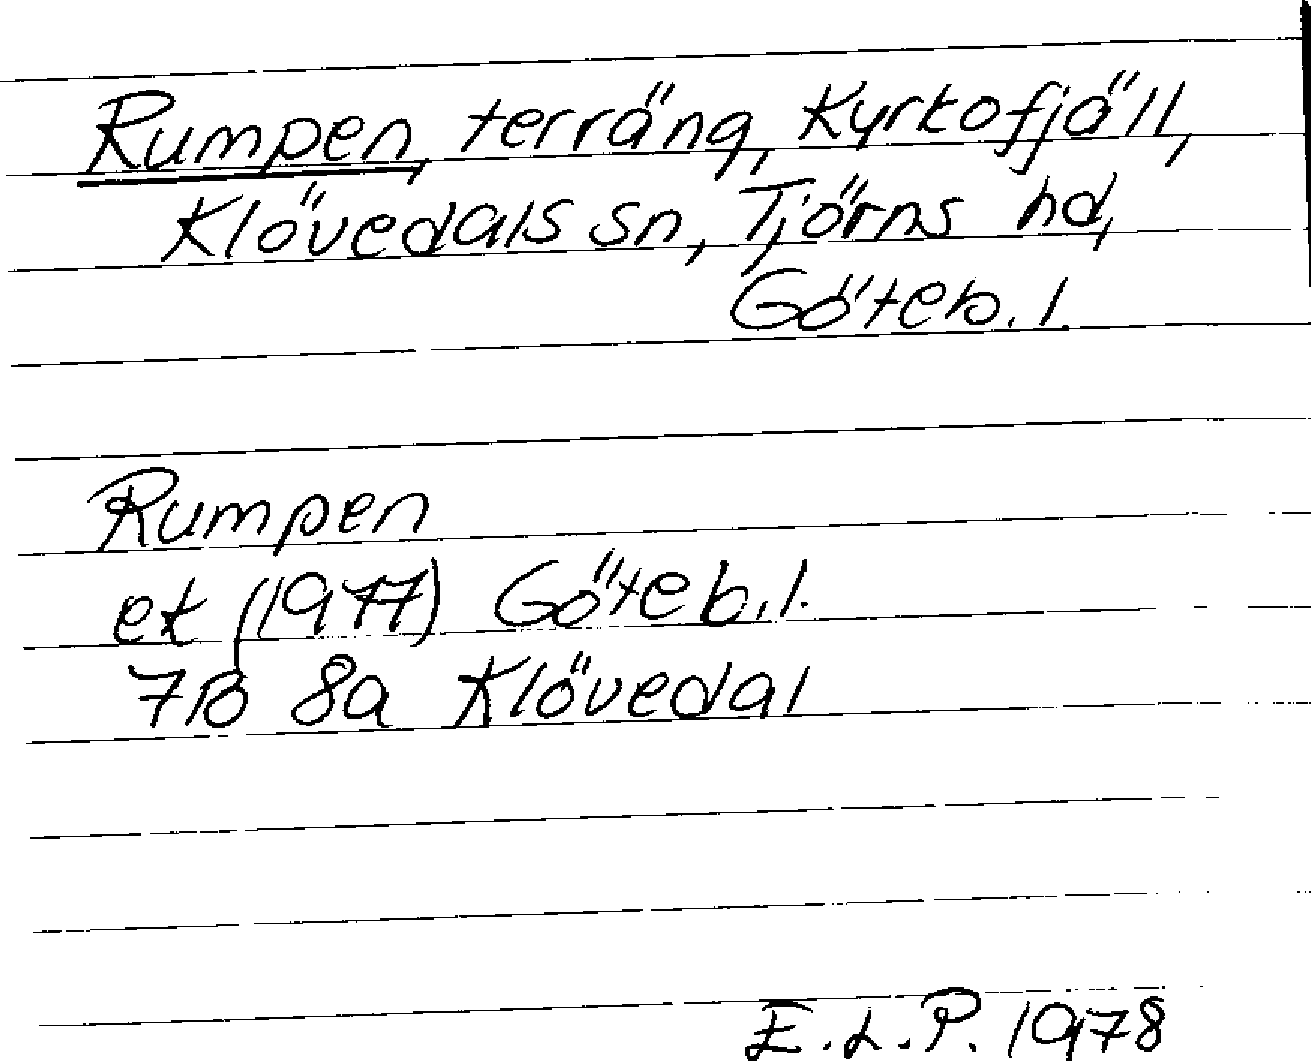 Rumpen, terräng, Kyrkofjäll,
Klövedals sn, Tjörns hd,
Göteb. l.
Rumpen
ek (1977) Göteb. l.
7B 8a Klövedal
E.L.P. 1978